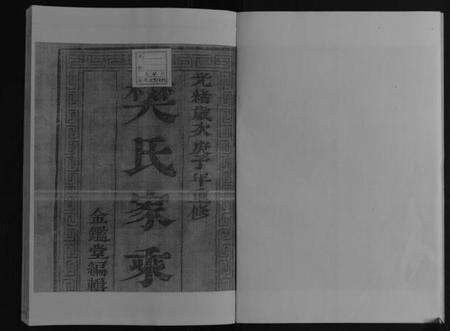 光緒歲次庚子年重修
樊氏家乘
金鑑堂編輯